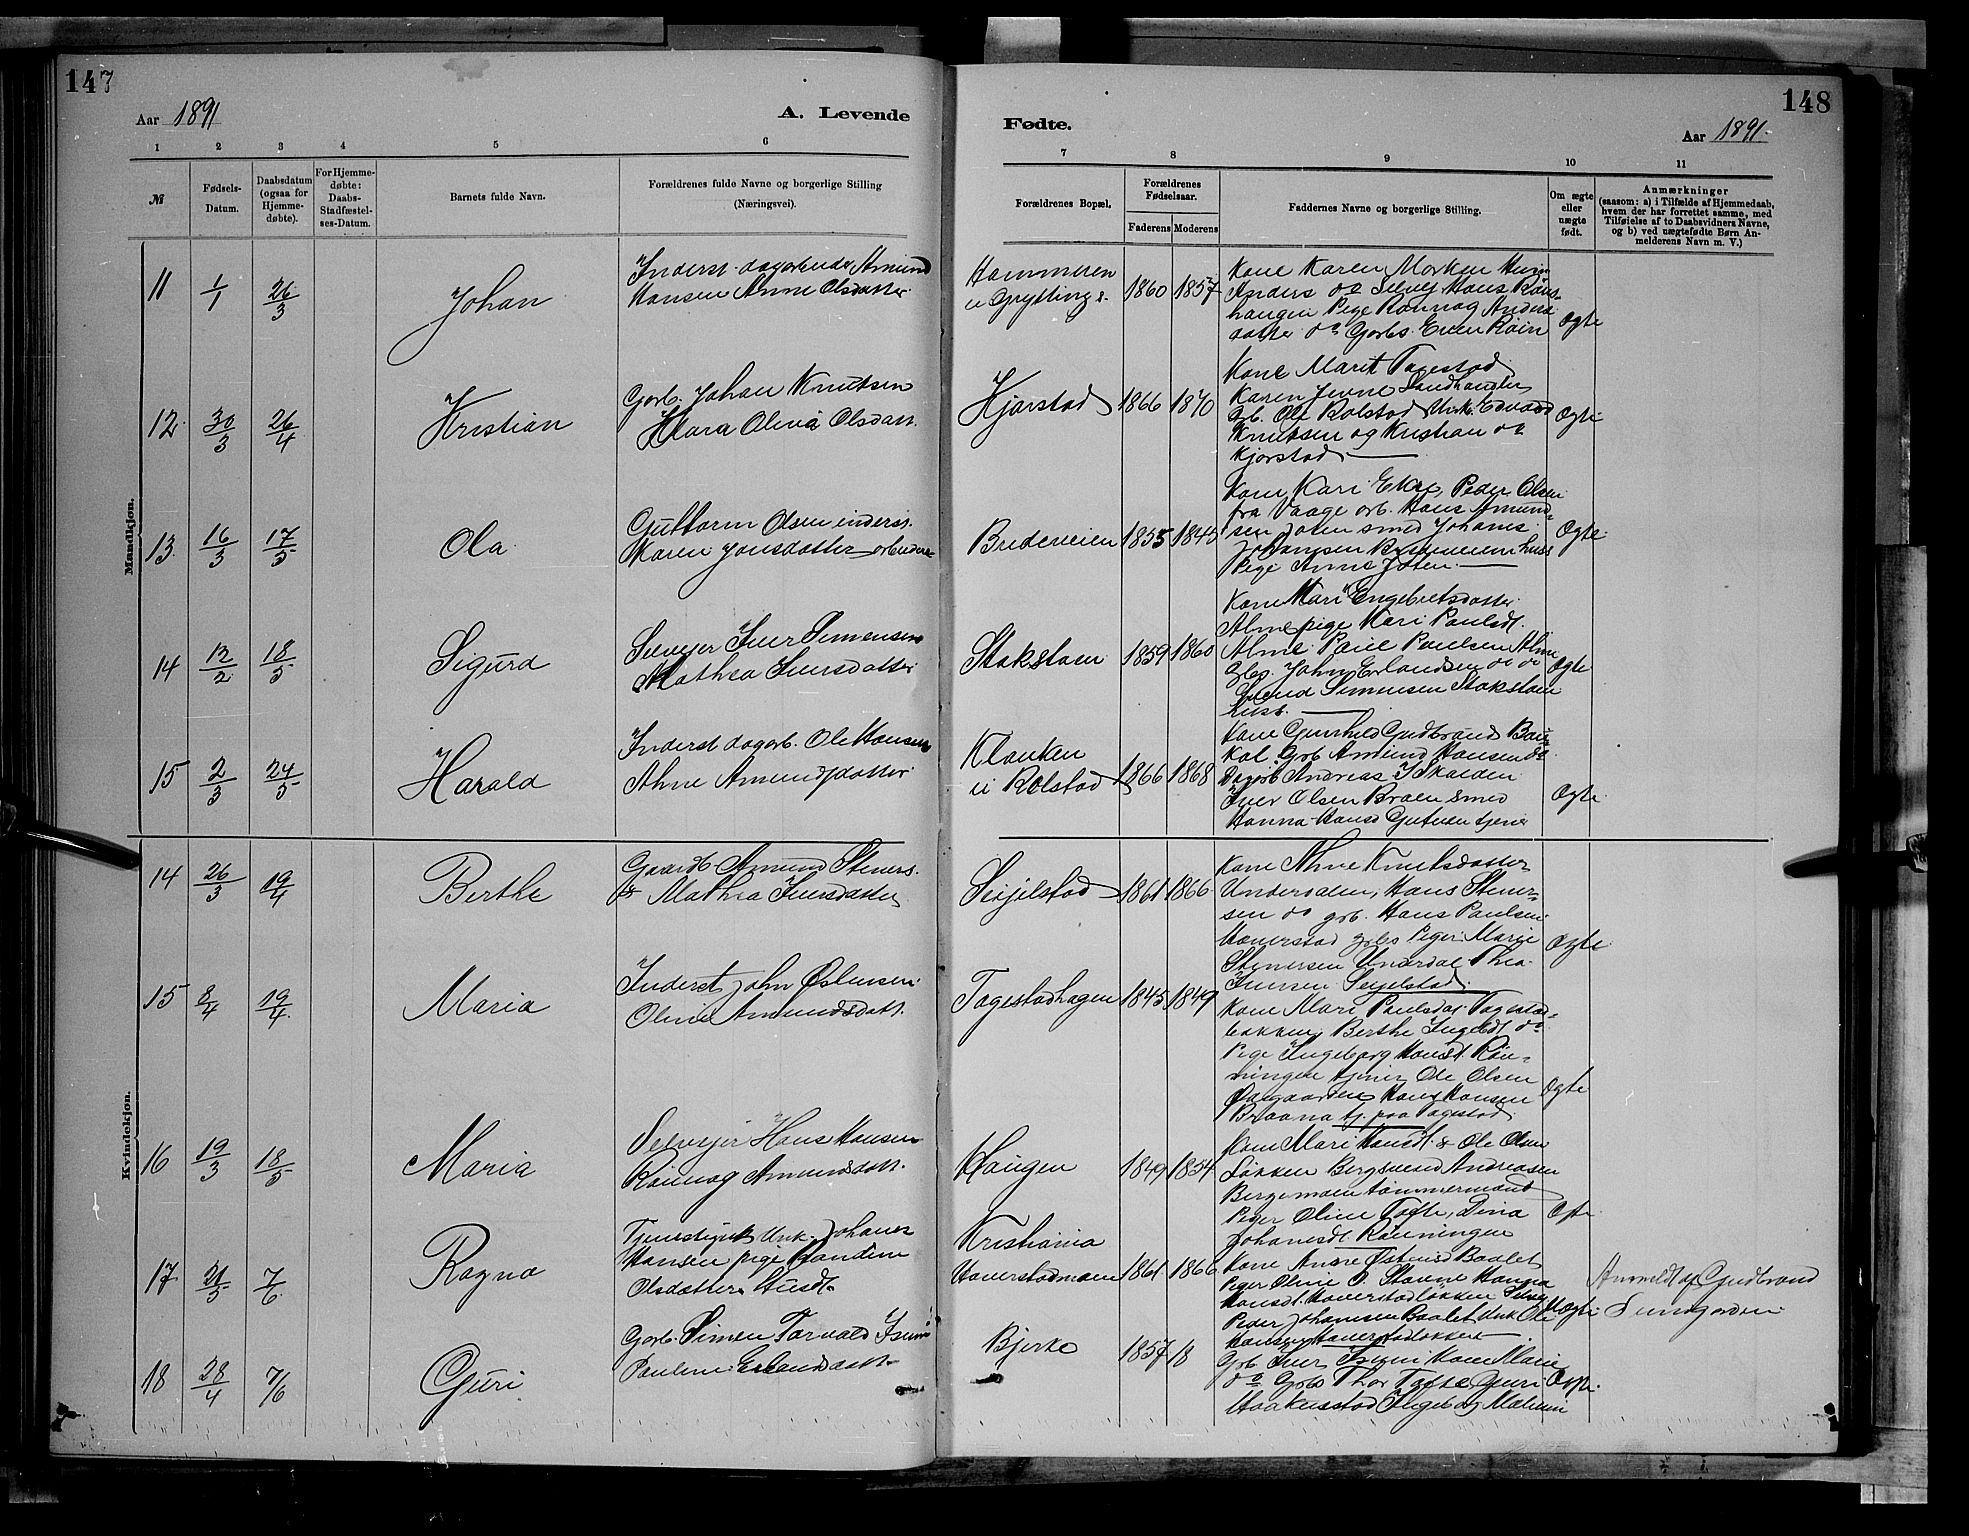 147
Aar 1891
A. Levende
1 2 3 4 5 6
№
Fødsels-
Datum.
Daabsdatum
(ogsaa for
Hjemme-
døbte).
For Hjemme-
døbte:
Daabs-
Stadfæstel-
ses-Datum.
Barnets fulde Navn.
Forældrenes fulde Navne og borgerlige Stilling
(Næringsvei).
Mandkjøn.
11 1/1 26/3 Johan
Inderst dagarbeider Amund
Hansen Anne Olsdatter
12 30/3 26/4 Kristian
Gorb. Johan Knutsen
Klara Oliva Olsdatt.
13 16/3 17/5 Ola
Guttorm Olsen inderst
Karen Jonsdatter
14 12/2 18/5 Sigurd
Selveier Iver Simensen
Mathea Iversdatter
15 2/3 24/5 Harald
Inderst dagarb. Ole Hansen
Anne Amundsdatter
Kvindekjøn.
14 26/3 19/4 Berthe
Gaardb. Amund Steners.
& Mathea Iversdatter
15 8/4 19/4 Maria
Inderst John Østensen
Oline Amundsdatt.
16 19/3 18/5 Maria
Selveier Hans Hansen
Rønnog Amundsdatt.
17 21/5 7/6 Ragna
Tjenestegut Unk. Johanes
Hansen pige Randine
Olsdatter
18 28/4 7/6 Guri
Gorb. Simen Torvald
Pauline Erlandsdatt.
148
Fødte.
Aar 1891.
7 8 9 10 11
Forældrenes Bopæl.
Forældrenes
Fødselsaar.
Faderens Moderens
Faddernes Navne og borgerlige Stilling.
Om ægte
eller
uægte
født.
Anmærkninger
(saasom: a) i Tilfælde af Hjemmedaab,
hvem der har forrettet samme, med
Tilføielse af to Daabsvidners Navne,
og b) ved uægtefødte Børn An-
melderens Navn m. V.)
Hammeren
u Grytting 1860 1857
Kone Karen Morken
Anders do Selvej Hans Røns-
haugen Pige Rønnog Anders
datter do Gorbs. Even Røin
Ægte
Kjorstad 1866 1870
Kone Marit Tagestad
Karen Jevne Landhandler
Grb. Ole Rolstad Unk. Edvard
Knutsen og Kristian do
Kjorstad
Ægte
Bredeveien 1855 1845
Kone Kari Ekre, Peder Olsen
fra Vaage arb. Hans Amund-
sen smed Johanes
Johansen
Pige Anne
Ægte
Stokstoen 1859 1860
Kone Mari Engebretsdatter
Alme pige Kari Paulsdt.
Alme Paul Paulsen Alme
Grbs. John Erlandsen do do
Simensen Stokstoen
Ægte
Klonken
u Rolstad 1866 1868
Kone Gunhild Gudbrands
Grb Amund Hansen do
Dagarb Andreas
Iver Olsen Braen smed
Hanna Hansd tjener
Ægte
Seijelstad 1861 1866
Kone Anne Knutsdatter
Underdalen, Hans Stener-
sen do grb. Hans Paulsen
Haverstad grbs Piger Marie
Stenersen Underdal Thea
Iversen Seijelstad
Ægte
Tagestadhagen 1845 1849
Kone Mari Paulsdt. Tagestad-
bakken, Berthe Ingebdt do
Pige Ingeborg Hansdt. Røn-
ningen tjener Ole Olsen
Hans Hansen
Braana tj. paa Tagestad
Ægte
Haugen 1849 1854
Kone Mari Hansdt. & Ole Olsen
Løkken Bergsvend Andreasen
Bergemoen tømmermand
Piger Oline Tofte, Dina
Johanesdt. Rønningen
Ægte
Kristiania
Haverstadmoen 1861 1866
Kone Anne Baalet
Piger Oline O. Stavne Hanna
Hansdt. Haverstadløkken
Peder Johansen Baalet Unk Ole
Hansen Haverstadløkken
Uægte
Anmeldt af Gudbrand
Bjerke 1857 18
Grb Iver Kone Marie
do Grbs Thor Tofte Guri
Haakenstad Ingeborg
Ægte